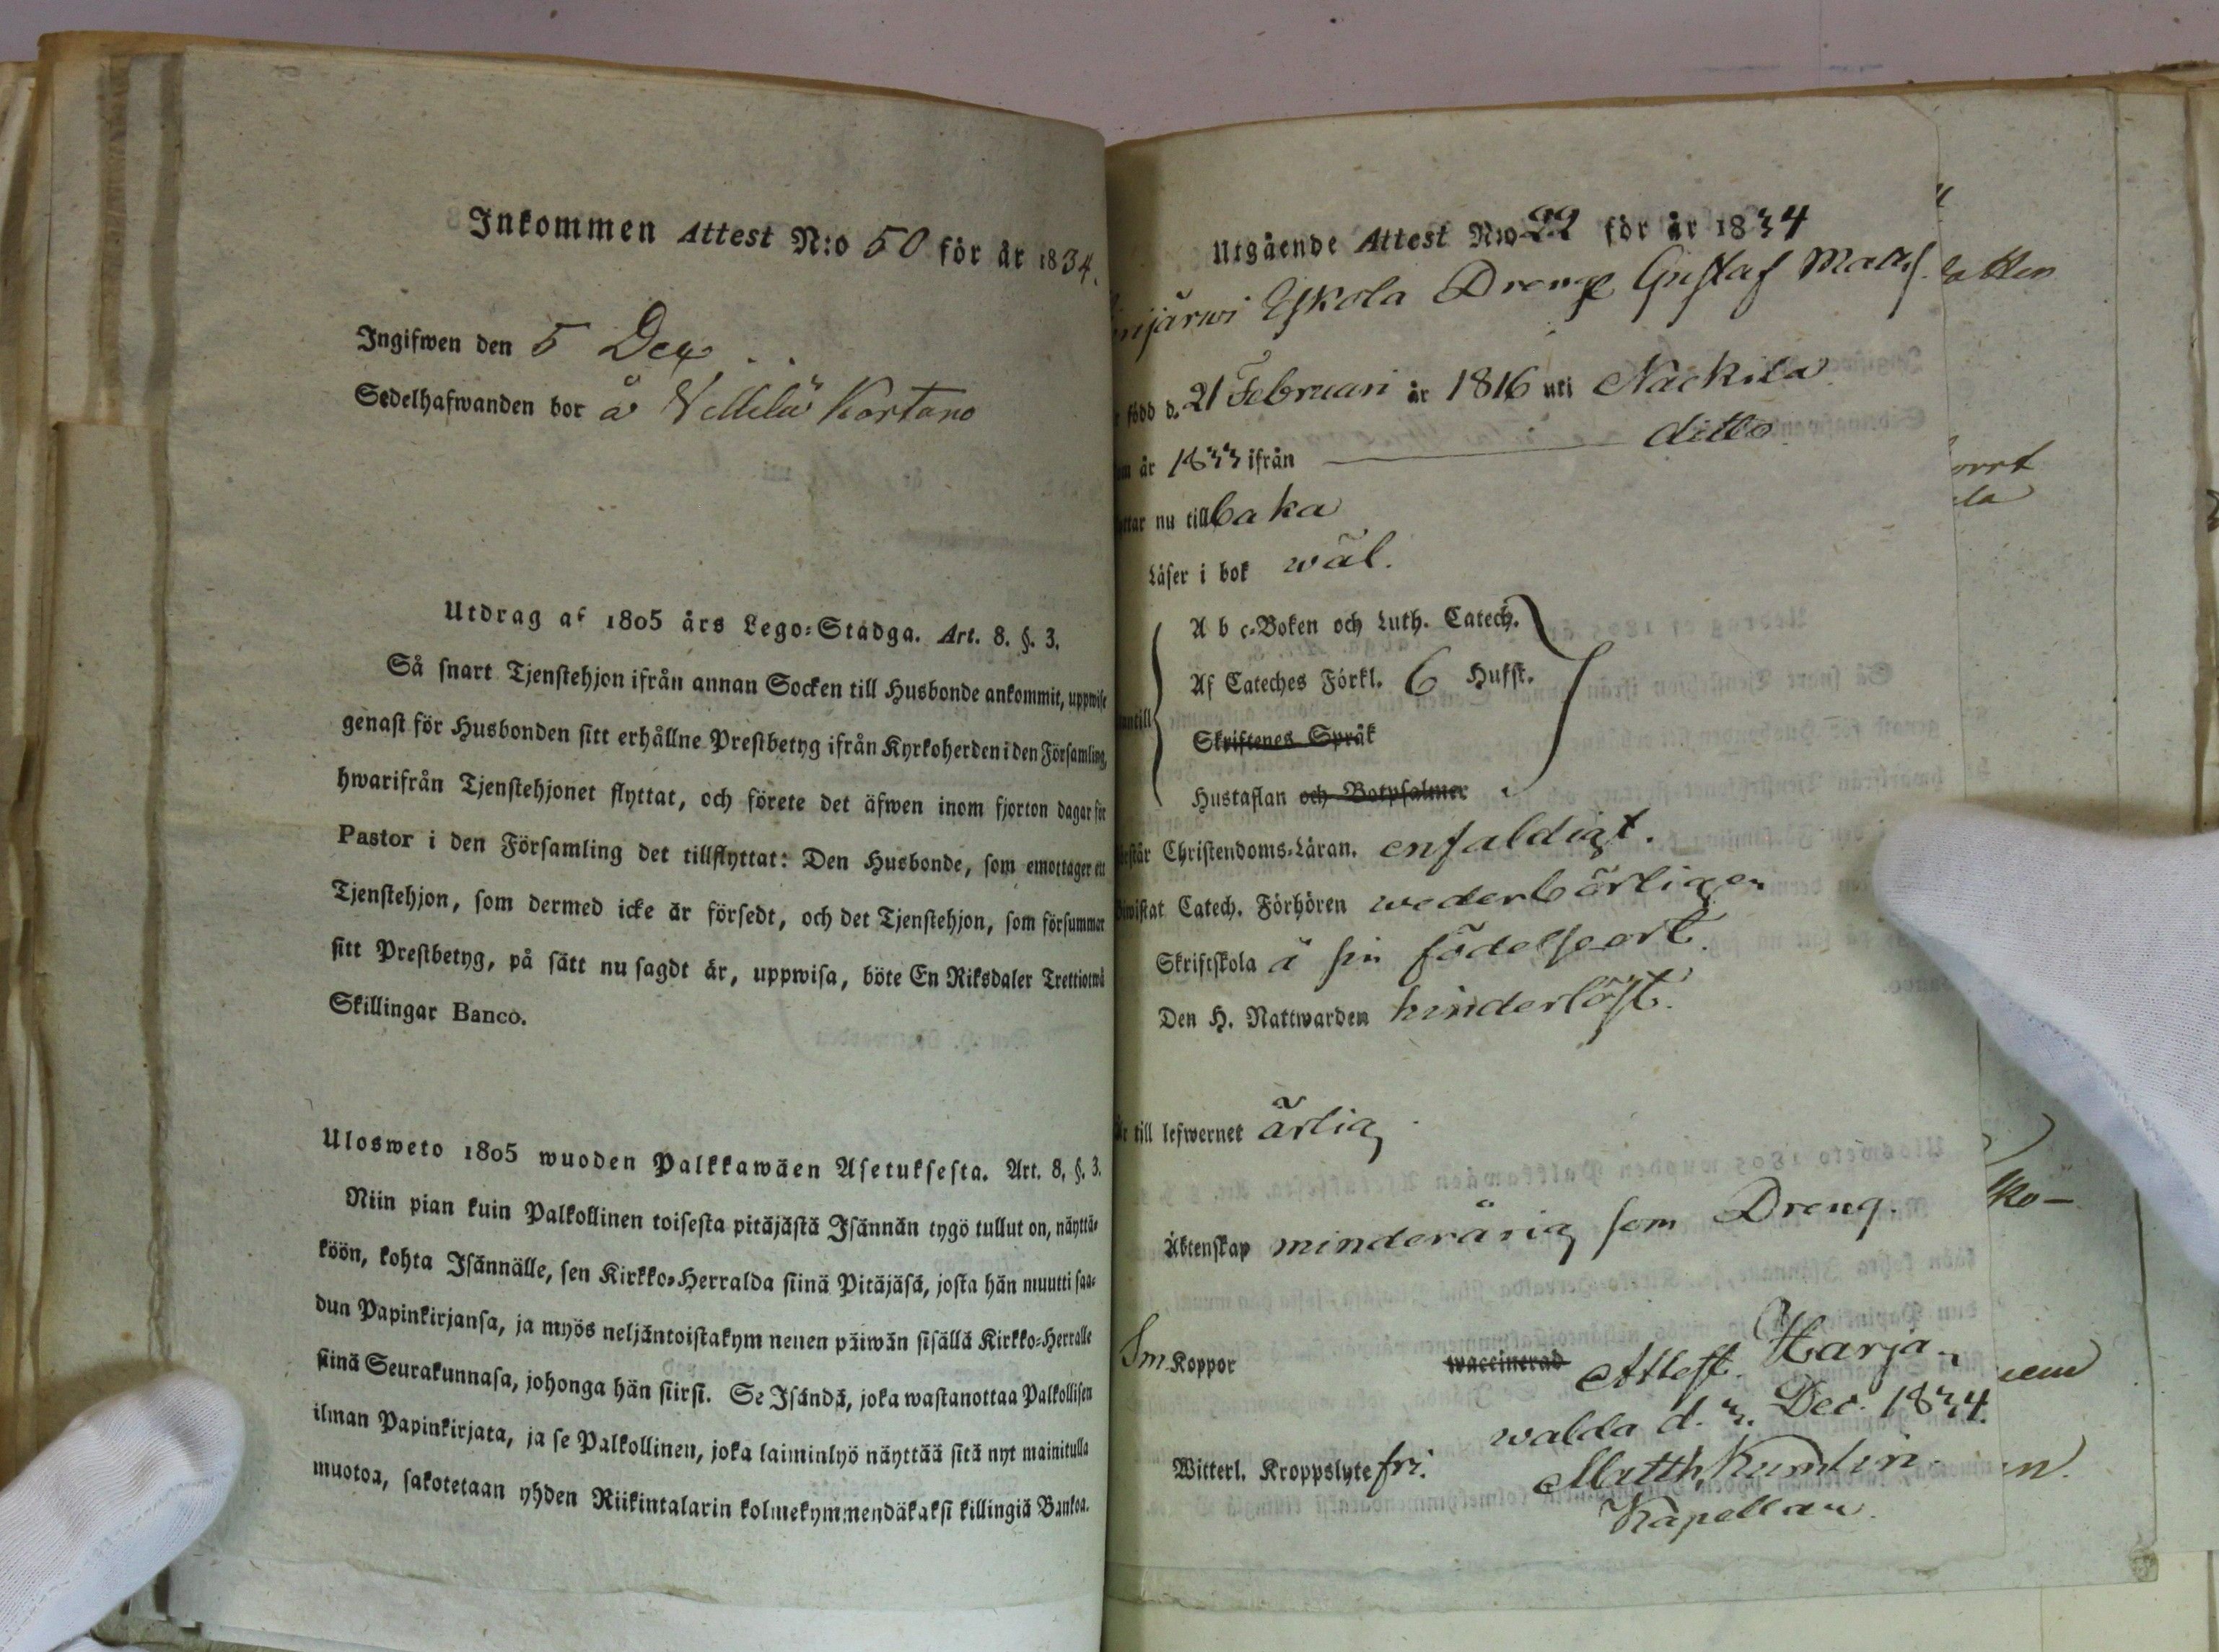 Inkommen Attest N:o 50 för år 1834.
Ingifwen den 5 Dec
Sedelhafwanden bor å Villilä Kartano
Utdrag af 1805 års Lego-Stadga. Art. 8. §. 3.
Så snart Tjenstehjon ifrån annan Socken till Husbonde ankommit, uppwise
genast för Husbonden sitt erhållne Prestbetyg ifrån Kyrkoherden i den Församling,
hwarifrån Tjenstehjonet flyttat, och förete det äfwen inom fjorton dagar för
Pastor i den Församling det tillflyttat: Den Husbonde, som emottager en
Tjenstehjon, som dermed icke är försedt, och det Tjenstehjon, som försummar
sitt Prestbetyg, på sätt nu sagdt är, uppwisa, böte En Riksdaler Trettiotwå
Skillingar Banco.
Ulosweto 1805 wuoden Palkkawäen Asetuksesta. Art. 8. §. 3.
Niin pian kuin Palkollinen toisesta pitäjästä Isännän tygö tullut on, näyttä-
köön, kohta Isännälle, sen Kirkko-Herralda siinä Pitäjäsä, josta hän muutti saa-
dun Papinkirjansa, ja myös neljäntoistakym nenen päiwän sisällä Kirkko-Herralle
siinä Seurakunnasa, johonga hän siirsi. Se Isändä, joka wastanottaa Palkollisen
ilman Papinkirjata, ja se Palkollinen, joka laiminlyö näyttää sitä nyt mainitulla
muotoa, sakotetaan yhden Riikintalarin kolmekymmendäkaksi killingiä Bankoa.
Utgående Attest N:o 22 för år 1834
njärwi Eskola Dreng Gustaf Matts.
född d. 21 Februari år 1816 uti Nackila
år 1833 ifrån ditto
nu tillbaka
Läser i bok wäl.
A b c-Boken och Luth. Catech.
Af Cateches Förkl. 6 Hufst.
Skriftenes Språk
Hustaflan och Botpsalmer
Christendoms-Läran. enfaldigt.
Catech. Förhören wederbörligen
Skriftskola å sin födelseort.
Den H. Nattwarden hinderlöst.
till lefwernet ärlig
Äktenskap minderårig som Dreng.
Sm. Koppor waccinerad Attest. Harja-
walda d. 3. Dec. 1834.
Witterl. Kroppslyte fri. Matth. Kumlin.
Kapellan.